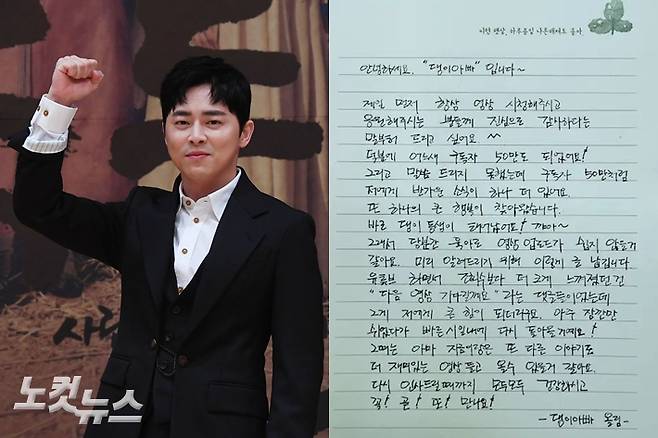 노컷뉴스
사랑
안녕하세요. "댕이아빠" 입니다~
제일 먼저 항상 영상 시청해주시고
응원해주시는 분들께 진심으로 감사하다는
말부터 드리고 싶어요. ^^
덕분에 어느새 구독자 50만도 되었어요!
그리고 말씀 드리지 못했는데 구독자 50만처럼
저에게 반가운 소식이 하나 더 있어요.
또 하나의 큰 행복이 찾아왔습니다.
바로 댕이 동생이 태어났어요! 꺄아~
그래서 당분간 육아로 영상 업로드가 쉽지 않을거
같아요. 미리 알려드리기 위해 이렇게 글 남깁니다.
유튜브 하면서 조회수보다 더 크게 느껴졌던 건
"다음 영상 기다릴게요" 라는 댓글들이었는데
그게 저에게 큰 힘이 되더라구요. 아주 잠깐만
쉬었다가 빠른 시일내에 다시 돌아올게요!
그때는 아마 지금이랑은 또 다른 이야기로
더 재미있는 영상 들고 올수 있을거 같아요.
다시 인사드릴 때까지 모두모두 건강하시고
꼭! 곧! 또! 만나요!
- 댕이아빠 올림 -